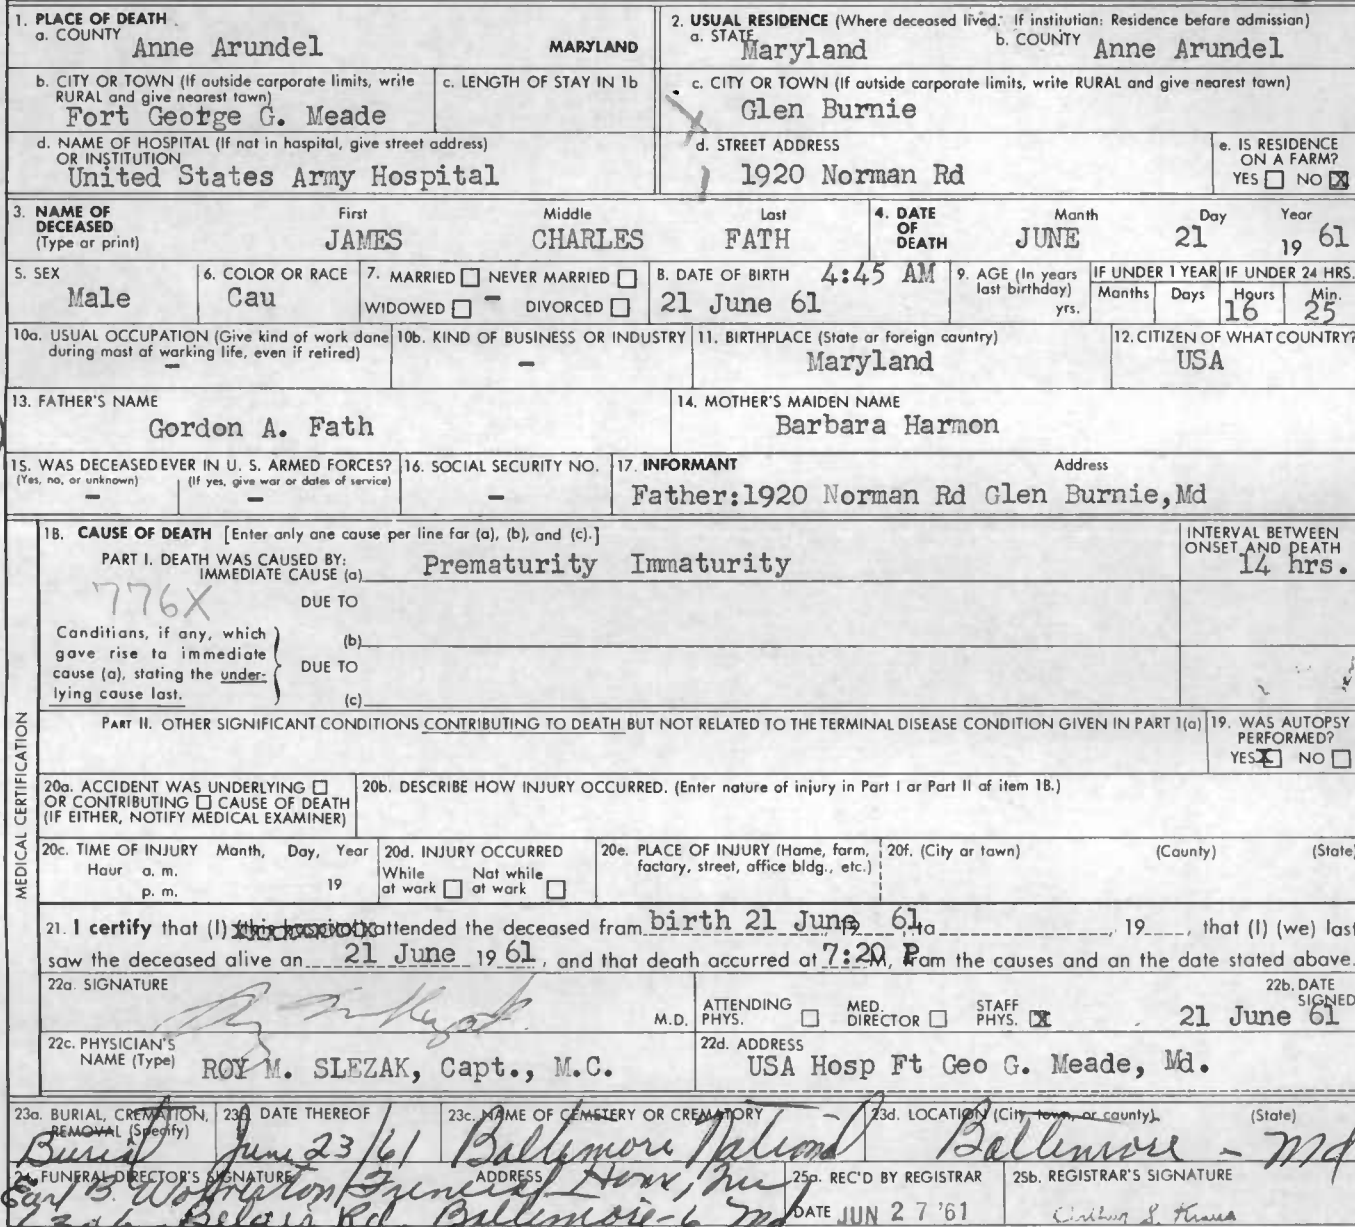 1. PLACE OF DEATH
a. COUNTY
Anne Arundel MARYLAND
2. USUAL RESIDENCE (Where deceased lived. If institution: Residence before admission)
a. STATE Maryland b. COUNTY Anne Arundel
b. CITY OR TOWN (If outside corporate limits, write RURAL and give nearest town)
Fort George G. Meade
c. LENGTH OF STAY IN 1b
c. CITY OR TOWN (If outside corporate limits, write RURAL and give nearest town)
Glen Burnie
d. NAME OF HOSPITAL (If not in hospital, give street address)
OR INSTITUTION
United States Army Hospital
d. STREET ADDRESS
1920 Norman Rd
e. IS RESIDENCE
ON A FARM?
YES NO X
3. NAME OF
DECEASED
(Type or print)
First Middle Last
JAMES CHARLES FATH
4. DATE
OF
DEATH
Month Day Year
JUNE 21 19 61
5. SEX
Male
6. COLOR OR RACE
Cau
7. MARRIED NEVER MARRIED
WIDOWED - DIVORCED
8. DATE OF BIRTH 4:45 AM
21 June 61
9. AGE (In years
last birthday)
yrs.
IF UNDER 1 YEAR
Months Days
IF UNDER 24 HRS.
Hours Min.
16 25
10a. USUAL OCCUPATION (Give kind of work done
during most of working life, even if retired)
-
10b. KIND OF BUSINESS OR INDUSTRY
-
11. BIRTHPLACE (State or foreign country)
Maryland
12. CITIZEN OF WHAT COUNTRY?
USA
13. FATHER'S NAME
Gordon A. Fath
14. MOTHER'S MAIDEN NAME
Barbara Harmon
15. WAS DECEASED EVER IN U. S. ARMED FORCES?
(Yes, no, or unknown) (If yes, give war or dates of service)
- -
16. SOCIAL SECURITY NO.
-
17. INFORMANT Address
Father:1920 Norman Rd Glen Burnie,Md
MEDICAL CERTIFICATION
18. CAUSE OF DEATH [Enter only one cause per line for (a), (b), and (c).]
PART I. DEATH WAS CAUSED BY:
IMMEDIATE CAUSE (a) Prematurity Immaturity
INTERVAL BETWEEN
ONSET AND DEATH
14 hrs.
776X
DUE TO
Conditions, if any, which
gave rise to immediate
cause (a), stating the under-
lying cause last.
(b)
DUE TO
(c)
PART II. OTHER SIGNIFICANT CONDITIONS CONTRIBUTING TO DEATH BUT NOT RELATED TO THE TERMINAL DISEASE CONDITION GIVEN IN PART 1(a)
19. WAS AUTOPSY
PERFORMED?
YES X NO
20a. ACCIDENT WAS UNDERLYING
OR CONTRIBUTING CAUSE OF DEATH
(IF EITHER, NOTIFY MEDICAL EXAMINER)
20b. DESCRIBE HOW INJURY OCCURRED. (Enter nature of injury in Part I or Part II of item 18.)
20c. TIME OF INJURY Month, Day, Year
Hour a. m.
p. m. 19
20d. INJURY OCCURRED
While at work Not while at work
20e. PLACE OF INJURY (Home, farm,
factory, street, office bldg., etc.)
20f. (City or town) (County) (State)
21. I certify that (I) (this hospital) attended the deceased from birth 21 June, 19 61, to , 19 , that (I) (we) last
saw the deceased alive on 21 June 19 61, and that death occurred at 7:20 P M, from the causes and on the date stated above.
22a. SIGNATURE
M.D.
ATTENDING
PHYS.
MED.
DIRECTOR
STAFF
PHYS. X
22b. DATE
SIGNED
21 June 61
22c. PHYSICIAN'S
NAME (Type) ROY M. SLEZAK, Capt., M.C.
22d. ADDRESS
USA Hosp Ft Geo G. Meade, Md.
23a. BURIAL, CREMATION,
REMOVAL (Specify)
Burial
23b. DATE THEREOF
June 23/61
23c. NAME OF CEMETERY OR CREMATORY
Baltimore National
23d. LOCATION (City, town, or county) (State)
Baltimore - Md
24. FUNERAL DIRECTOR'S SIGNATURE ADDRESS
Earl B. Funeral Home, Inc
Belair Rd Baltimore-6 Md
25a. REC'D BY REGISTRAR
DATE JUN 27 '61
25b. REGISTRAR'S SIGNATURE
Arthur S. Kraus